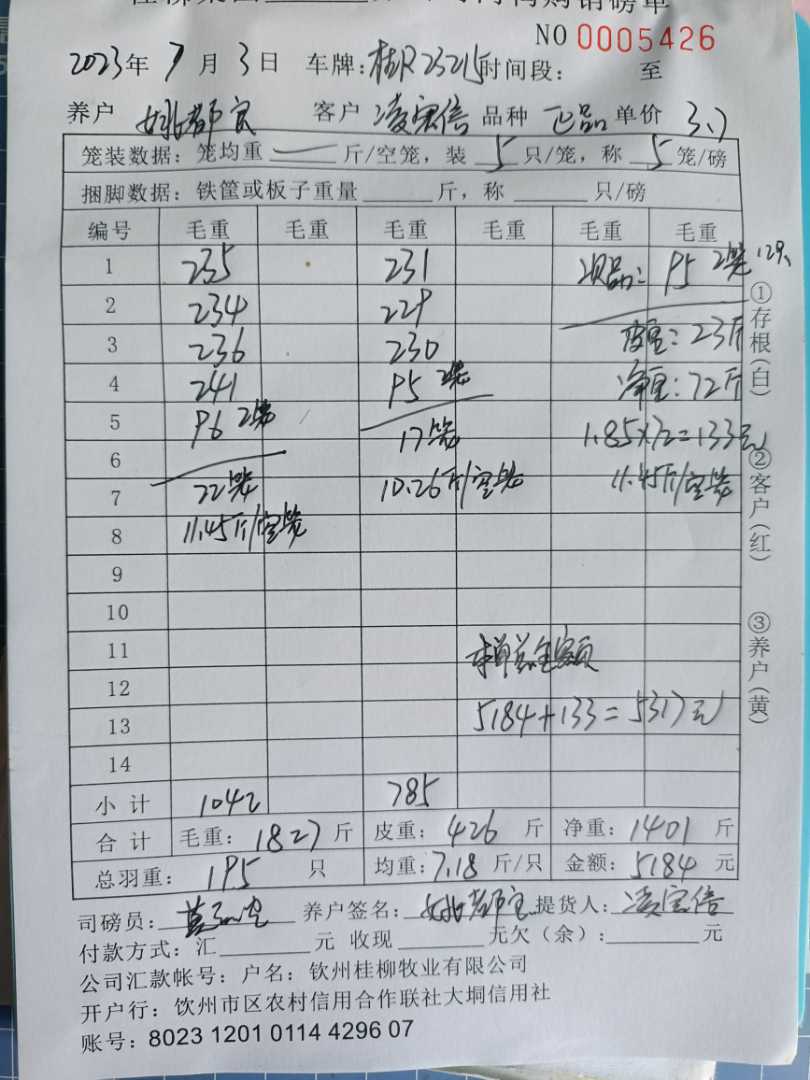 NO 0005426
2023年 7月 3日 车牌:桂R23215时间段: 至
养户 姚都宽 客户 凌宝信 品种 正品 单价 3.7
笼装数据: 笼均重 — 斤/空笼, 装 5 只/笼, 称 5 笼/磅
捆脚数据: 铁筐或板子重量 斤, 称 只/磅
编号 毛重 毛重 毛重 毛重 毛重 毛重
1 235 231 次品: 95 2笼 12只
2 234 229
3 236 230 皮重: 23斤
4 241 95 2笼 净重: 72斤
5 96 2笼 17笼 1.85×72=133元
6
7 22笼 10.26斤/空笼 11.45斤/空笼
8 11.45斤/空笼
9
10
11 本单总金额
12
13 5184+133=5317元
14
小计 1042 785
合计 毛重: 1827 斤 皮重: 426 斤 净重: 1401 斤
总羽重: 195 只 均重: 7.18 斤/只 金额: 5184 元
司磅员: 养户签名: 提货人: 凌宝信
付款方式: 汇 元 收现 元欠(余): 元
公司汇款帐号: 户名: 钦州桂柳牧业有限公司
开户行: 钦州市区农村信用合作联社大垌信用社
账号: 8023 1201 0114 4296 07
①存根(白)
②客户(红)
③养户(黄)